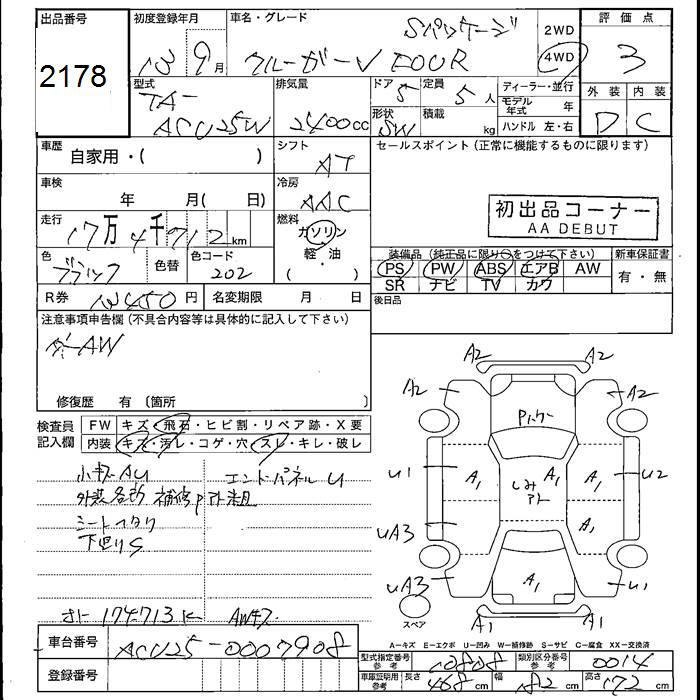 出品番号
2178
初度登録年月
13 9月
車名・グレード
Sパッケージ
クルーガーV FOUR
2WD
4WD
評価点
3
外装 内装
D C
型式
TA-
ACU25W
排気量
2400cc
ドア 5
定員 5人
形状 SW
積載 kg
ディーラー・並行
モデル年式 年
ハンドル 左・右
車歴
自家用・( )
シフト
AT
セールスポイント(正常に機能するものに限ります)
車検
年 月( 日)
冷房
AAC
初出品コーナー
AA DEBUT
走行
17万4千712km
燃料
ガソリン
軽・油
( ・ )
色
ブラック
色替
色コード
202
装備品(純正品に限り○をつけて下さい)
新車保証書
PS PW ABS エアB AW
SR ナビ TV カワ
有・無
R券
円
名変期限 月 日
後日品
注意事項申告欄(不具合内容等は具体的に記入して下さい)
修復歴 有〔箇所 〕
検査員
記入欄
FW キズ・飛石・ヒビ割・リペア跡・X要
内装 キズ・汚レ・コゲ・穴・スレ・キレ・破レ
小キズAU
エンドパネルU
外装各所 補修
下廻りS
174713K
AWキズ
A2 A2
A2 A2
U1 A1 A1 U2
しみ
アト
UA3 A1
UA3 A1 U1
A1 A1
スペア
A-キズ E-エクボ U-凹み W-補修跡 S-サビ C-腐食 XX-交換済
車台番号
ACU25-0007908
登録番号
型式指定番号
参考
10808
類別区分番号
参考
0014
車庫証明用
参考
長さ 468cm
幅 182cm
高さ 172cm